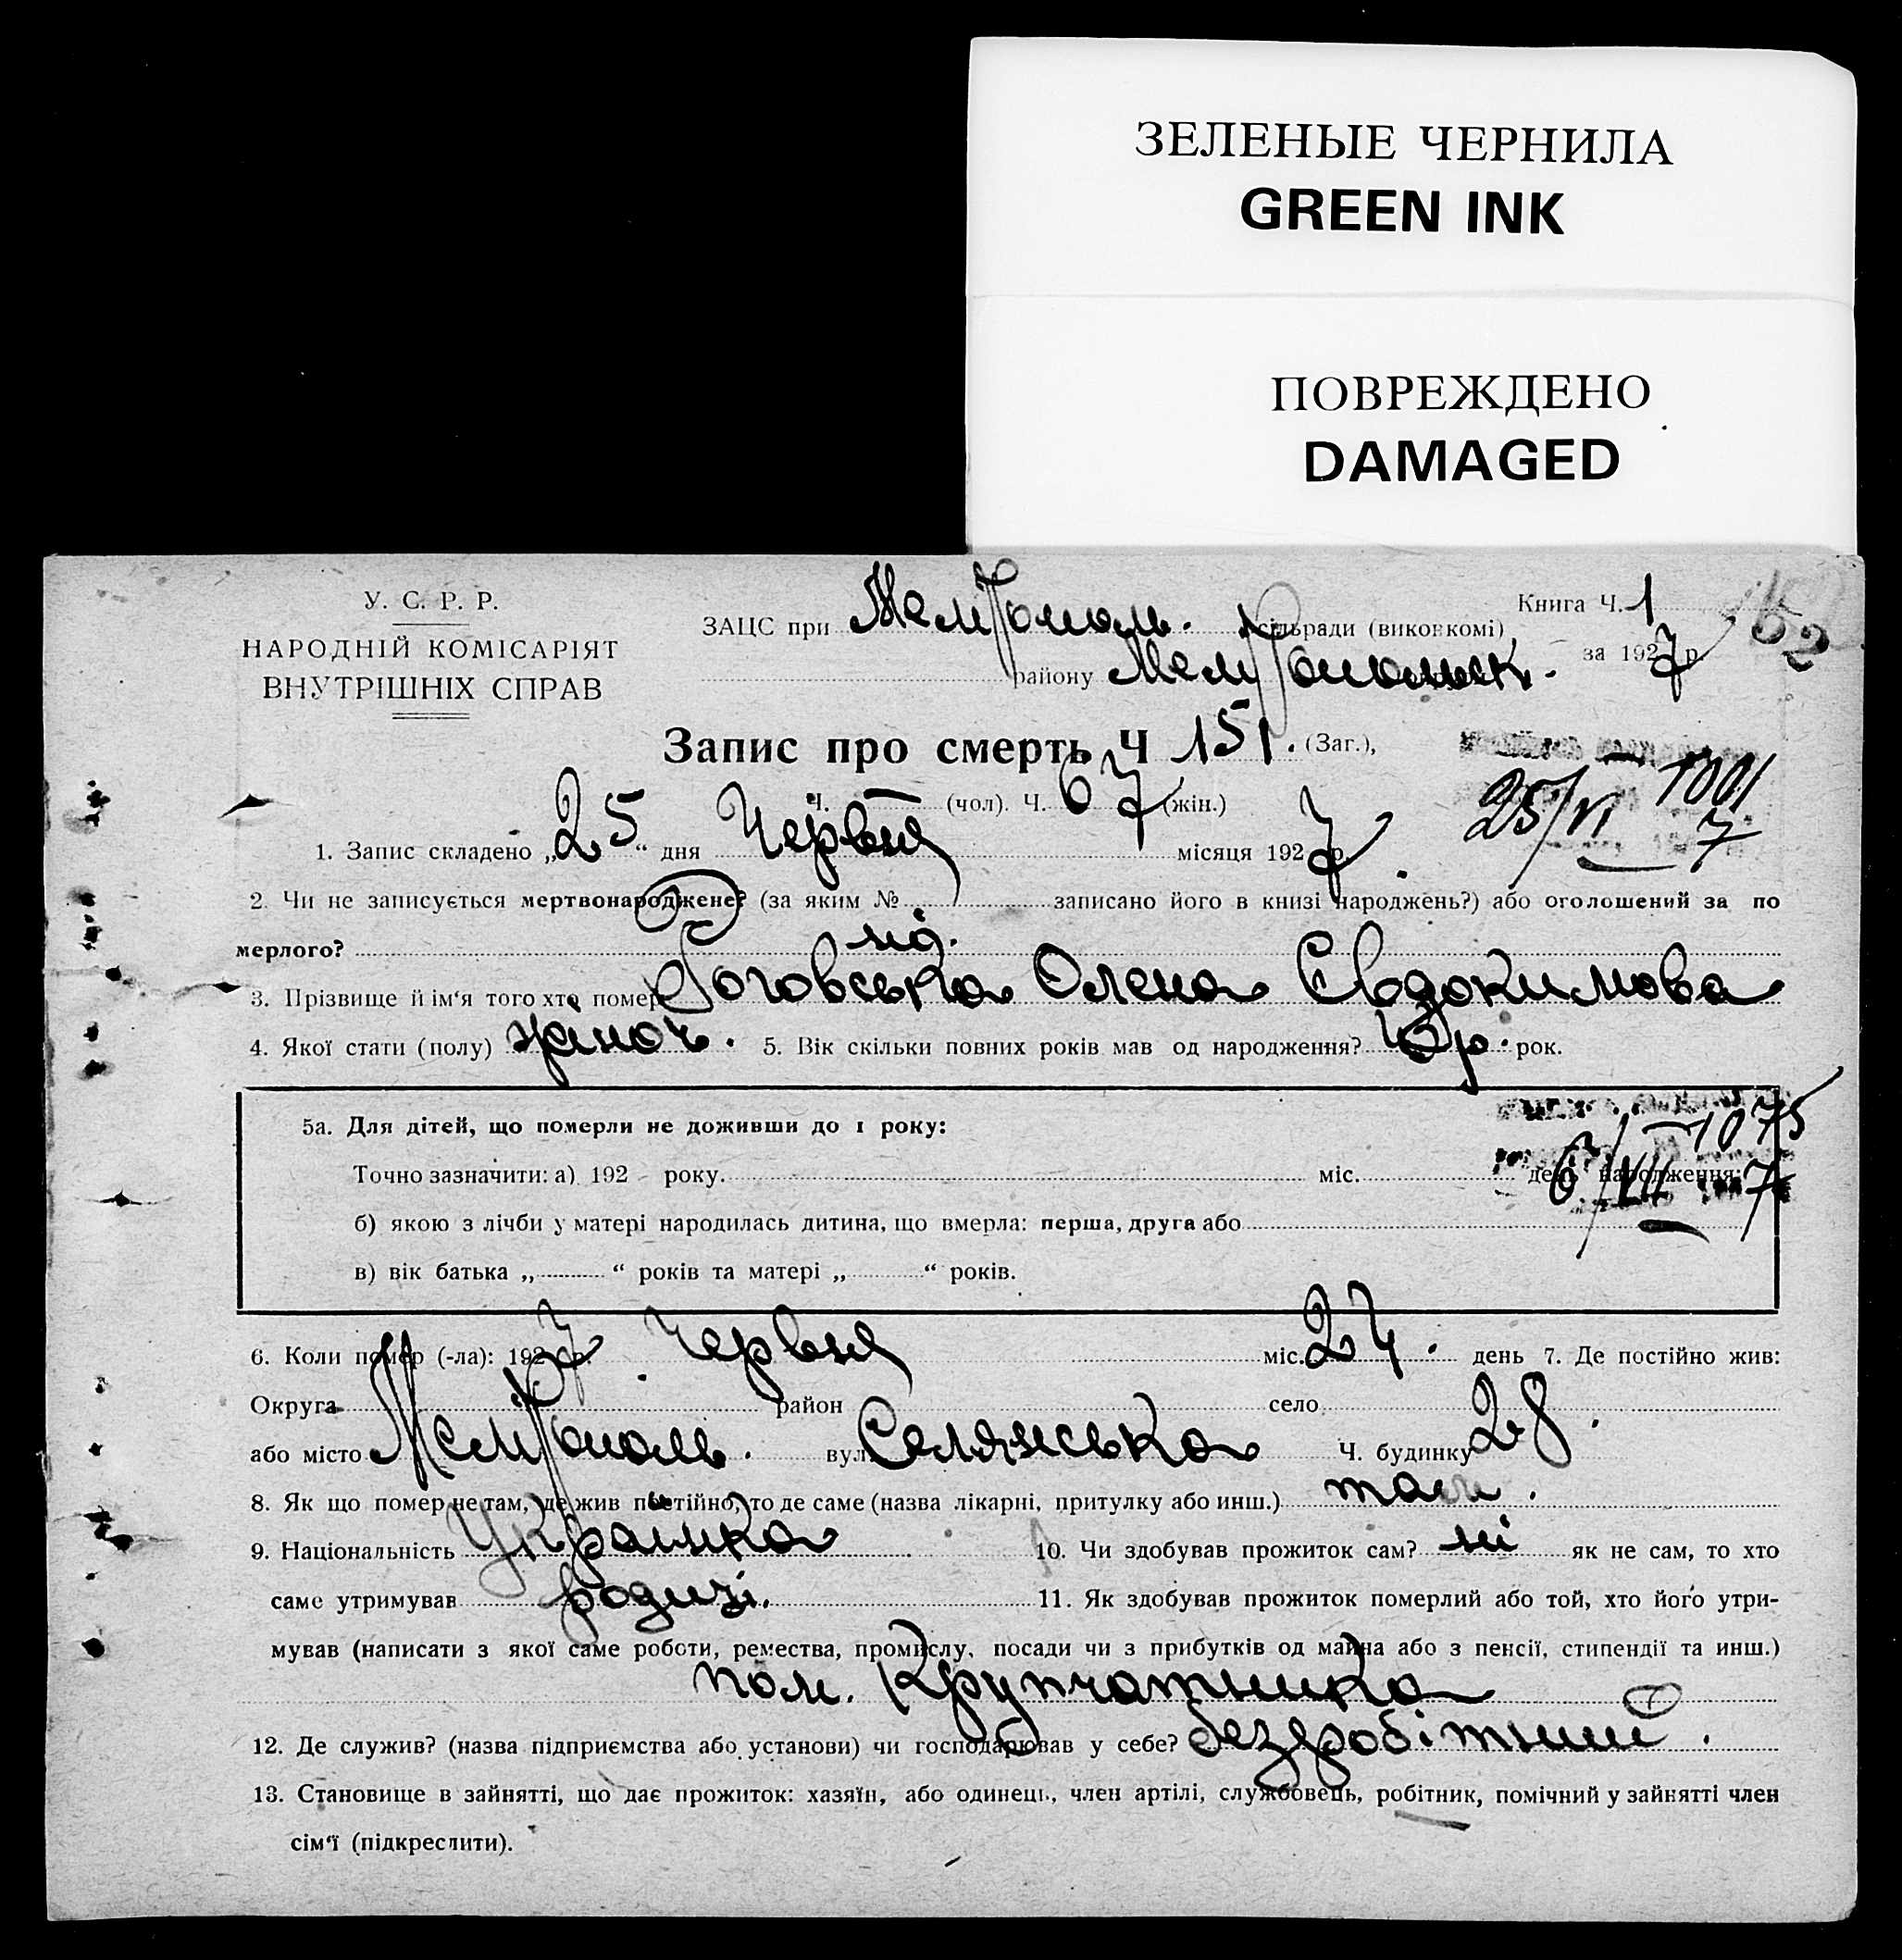 ЗЕЛЕНЫЕ ЧЕРНИЛА
GREEN INK
ПОВРЕЖДЕНО
DAMAGED
У. С. Р. Р.
НАРОДНІЙ КОМІСАРІЯТ
ВНУТРІШНІХ СПРАВ
ЗАЦС при Мелітополь. сільради (виконкомі)
району Мелітопольск.
Книга Ч. 1
за 1927 р.
152
Запис про смерть Ч 151. (Заг.),
Ч. — (чол). Ч. 67 (жін.)
25/VI — 1001
7
1. Запис складено „25“ дня Червня місяця 1927 р.
2. Чи не записується мертвонароджене? (за яким № записано його в книзі народжень?) або оголошений за по
мерлого? ні.
3. Прізвище й ім'я того хто помер Роговська Олена Євдокимова
4. Якої стати (полу) жіноч. 5. Вік скільки повних років мав од народження? р. рок.
5а. Для дітей, що померли не доживши до 1 року:
Точно зазначити: а) 192 року. міс. день народження:
6/VII — 1075
7
б) якою з лічби у матері народилась дитина, що вмерла: перша, друга або
в) вік батька „ “ років та матері „ “ років.
6. Коли помер (-ла): 1927 р. Червня міс. 24. день 7. Де постійно жив:
Округа район село
або місто Мелітополь. вул. Селянська Ч. будинку 28.
8. Як що помер не там, де жив постійно, то де саме (назва лікарні, притулку або инш.) там.
9. Національність Українка 10. Чи здобував прожиток сам? ні як не сам, то хто
саме утримував родичі. 11. Як здобував прожиток померлий або той, хто його утри-
мував (написати з якої саме роботи, ремества, промислу, посади чи з прибутків од майна або з пенсії, стипендії та инш.)
пом. Крупчатника
12. Де служив? (назва підприємства або установи) чи господарював у себе? безробітний.
13. Становище в зайнятті, що дає прожиток: хазяїн, або одинець, член артілі, службовець, робітник, помічний у зайнятті член
сім'ї (підкреслити).